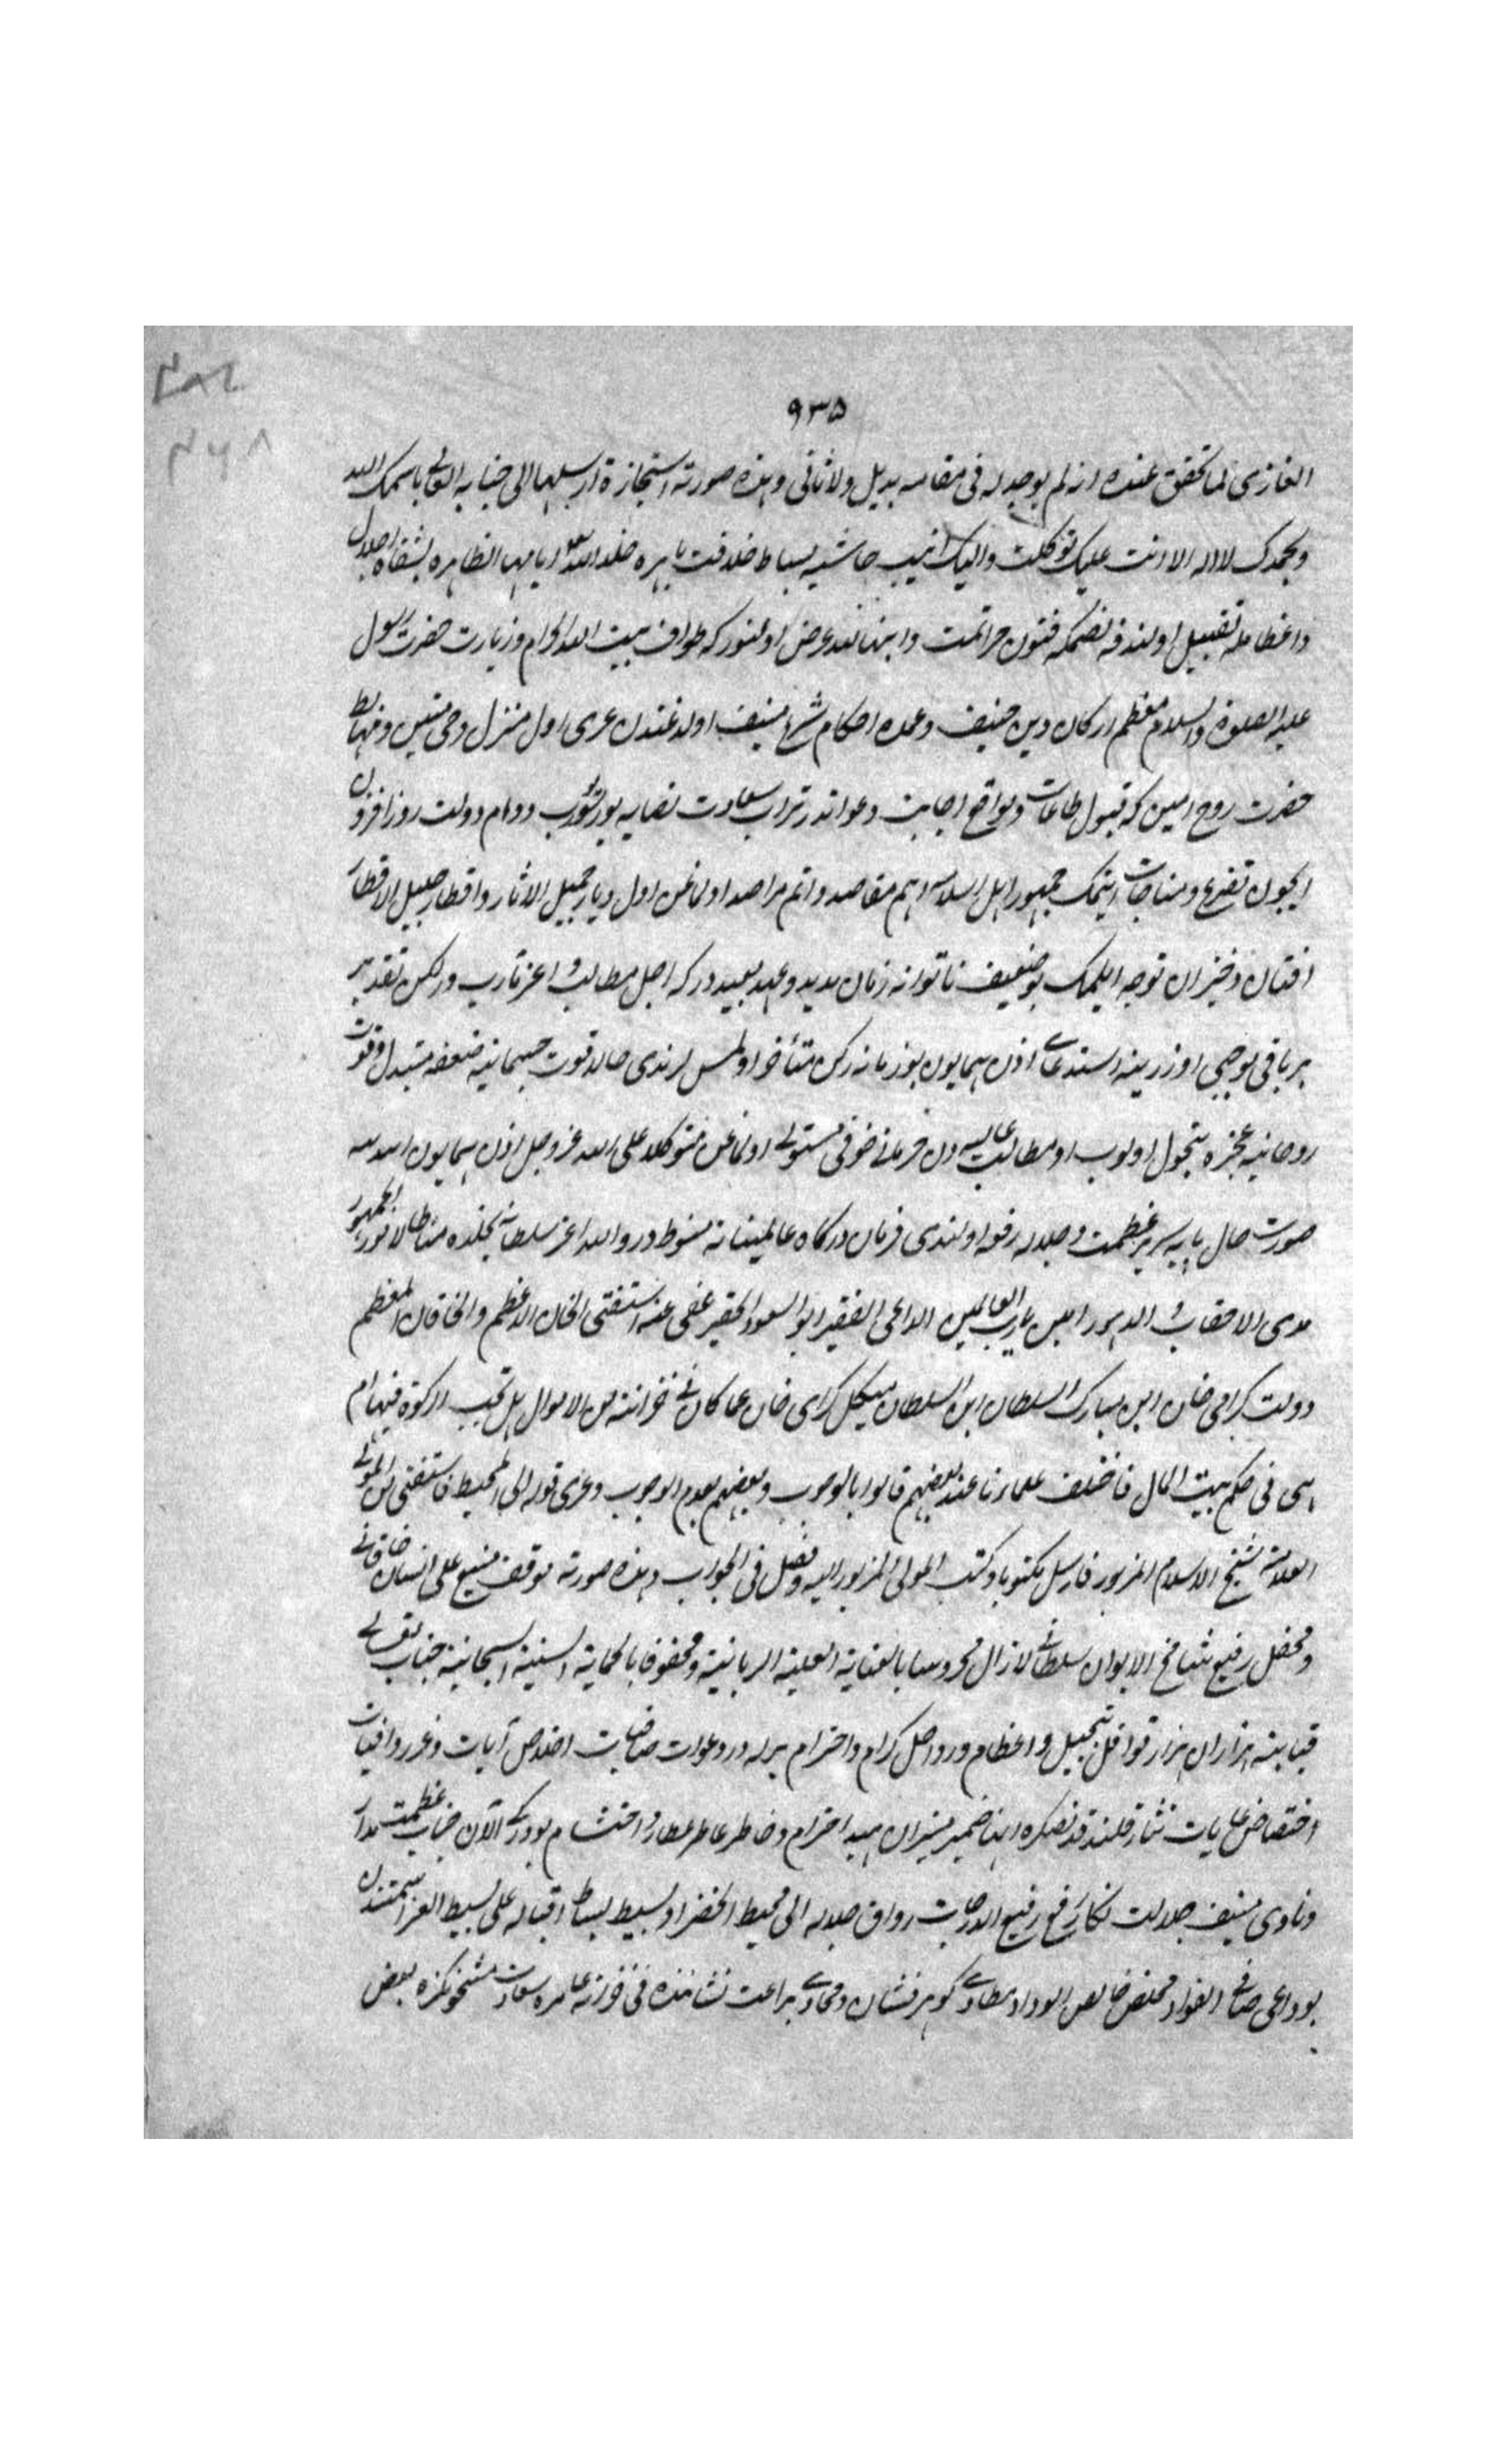 ٩٣٥
الغازى لما تحقق عنده انه لم يوجد له فى مقامه بديل ولا ثانى وهذه صورته استجازة ارسلها الى جنابه العالى باسمك اللهم
وبحمدك لا اله الا انت عليك توكلت واليك انيب حاشيه بساط خلافت باهره خلد الله تعالى ايامها الظاهره بشفاه اجلال
واعظامله تقبيل اولندقدنصكره فنون ضراعت وابتهالله عرض اولنوركه طواف بيت الله الحرام وزيارت حضرت رسول
عليه الصلوة والسلام معظم اركان دين حنيف وعمده احكام شرع منيف اولدغندن غيرى اول منزل وحى متين ومهابط
حضرت روح امين كه قبول طاعات ومواقع اجابت دعواتدر تراب سعادت نصابه يوز سوروب دوام دولت روزافزون
ايچون تضرع ومناجات ايتمك جمهور اهل اسلامه اهم مقاصد واتم مراصد اولماغن اول ديار جميل الاثار واقطار جليل الاقطار
افتان وخيزان توجه ايلمك بو ضعيف ناتوانه زمان مديد وعهد بعيددركه اجل مطالب واعز مآرب ولكن تقدير
ربانى موجبى اوزرينه استدعاى اذن همايون بو زمانه دكين متأخر اولمش ايدى حالا قوت جسمانيه ضعفه متبدل وقوت
روحانيه عجزه متحول اولوب او مطالب عاليه دن حرمان خوفى مستولى اولماغن متوكلا على الله عز وجل اذن همايون استدعاسنه
صورت حال پايه سرير عظمت وجلاله رفع اولندى فرمان دركاه عالميناته منوط در والله اعز سلطانه يخلده مناطا لامور الجمهور
مدى الاحقاب والدهور امين يا رب العالمين الداعى الفقير ابو السعود الحقير عفى عنه استفتى الخان الاعظم والخاقان المعظم
دولت كراى خان ابن مبارك السلطان ابن السلطان منكلى كراى خان عما كان فى خزانته من الاموال هل تجب الزكوة فيها ام
هى فى حكم بيت المال فاختلف علماؤنا عنده بعضهم قالوا بالوجوب وبعضهم بعدم الوجوب وعزى قوله الى المحيط فاستفتى من المولى
العلامة شيخ الاسلام المزبور فارسل مكتوبا وكتب المولى المزبور اليه وفصل فى الجواب وهذه صورته موقف منيع على انسان خاقانى
ومحفل رفيع شامخ الايوان سلطانى لازال محروسا بالعناية العلية الربانية ومحفوفا بالحماية السنية السبحانية جناب معالى
قبابنه هزاران هزار قوافل تبجيل واعظام ورواحل اكرام واحترام برله درر دعوات صافيات اخلاص آيات وغرر وافيات
اختصاص غايات نثار قلندقدنصكره انها ضمير منيران مهيب احترام وخاطر عاطر عطارد احتشام بودركه الآن جناب عظمتمدار
ونادى منيف جلالت نكار رفع رفيع الدرجات رواق جلاله الى محيط الخضرا وبسيط بساط اقباله على بسيط الغبرا سمتندن
بو داعى صافى الفؤاد مخلص خالص الوداد مطاوى كوهرفشان ومحاوى براعت نشانده فى خزينه عامره سعادت مشحونكزه بعض